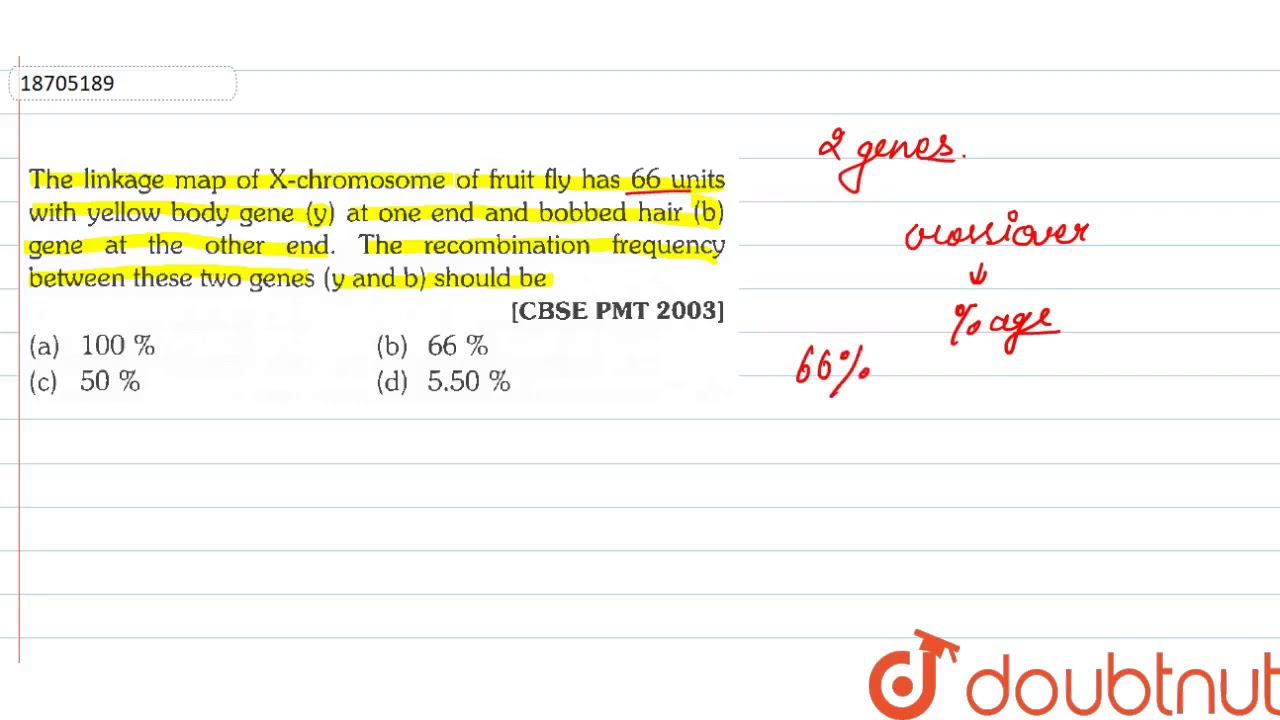 18705189
The linkage map of X-chromosome of fruit fly has 66 units
with yellow body gene (y) at one end and bobbed hair (b)
gene at the other end. The recombination frequency
between these two genes (y and b) should be
[CBSE PMT 2003]
(a) 100 % (b) 66 %
(c) 50 % (d) 5.50 %
2 genes.
crossiover
↓
% age
66%
doubtnut